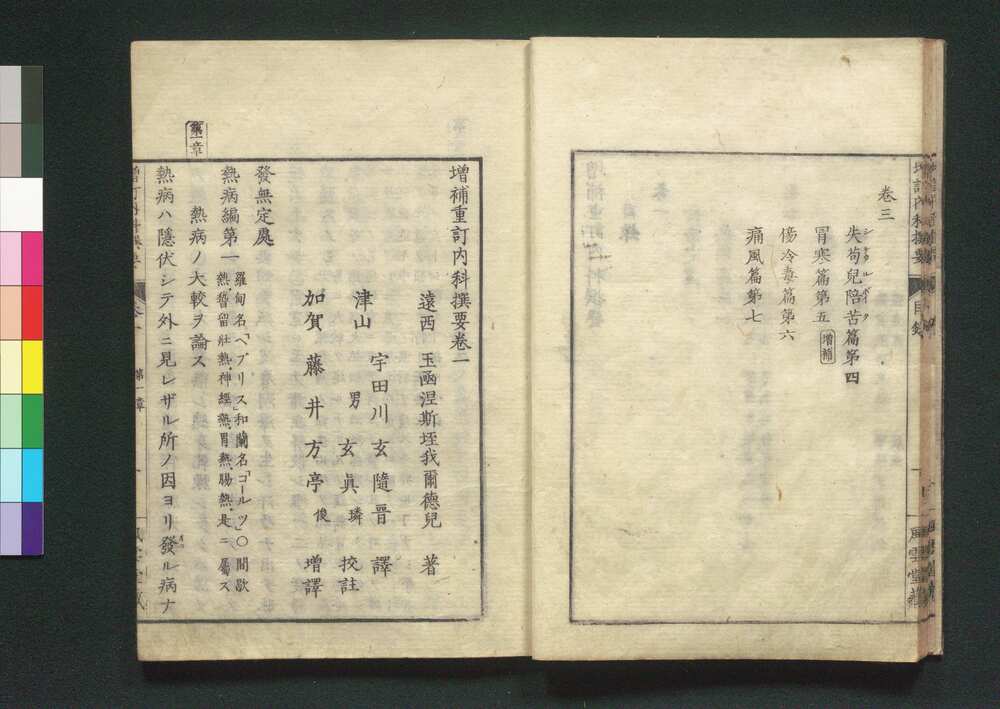 卷三
失苟兒陪苦篇第四
シケウルボイク
冐寒篇第五 增補
傷冷毒篇第六
痛風篇第七
目錄
風雲堂藏
增補重訂內科撰要卷一
遠西 玉函涅斯垤我爾德兒 著
宇田川玄隨晋 譯
津山 男 玄眞璘 校註
加賀 藤井方亭俊 增譯
發無定處
熱病編第一 羅甸名「ヘブリス」和蘭名「コールツ」〇間歇
熱、稽留壯熱、神經熱、胃熱、腸熱、是ニ屬ス
第一章
熱病ノ大較ヲ論ス
熱病ハ隱伏シテ外ニ見レザル所ノ因ヨリ發ル病ナ